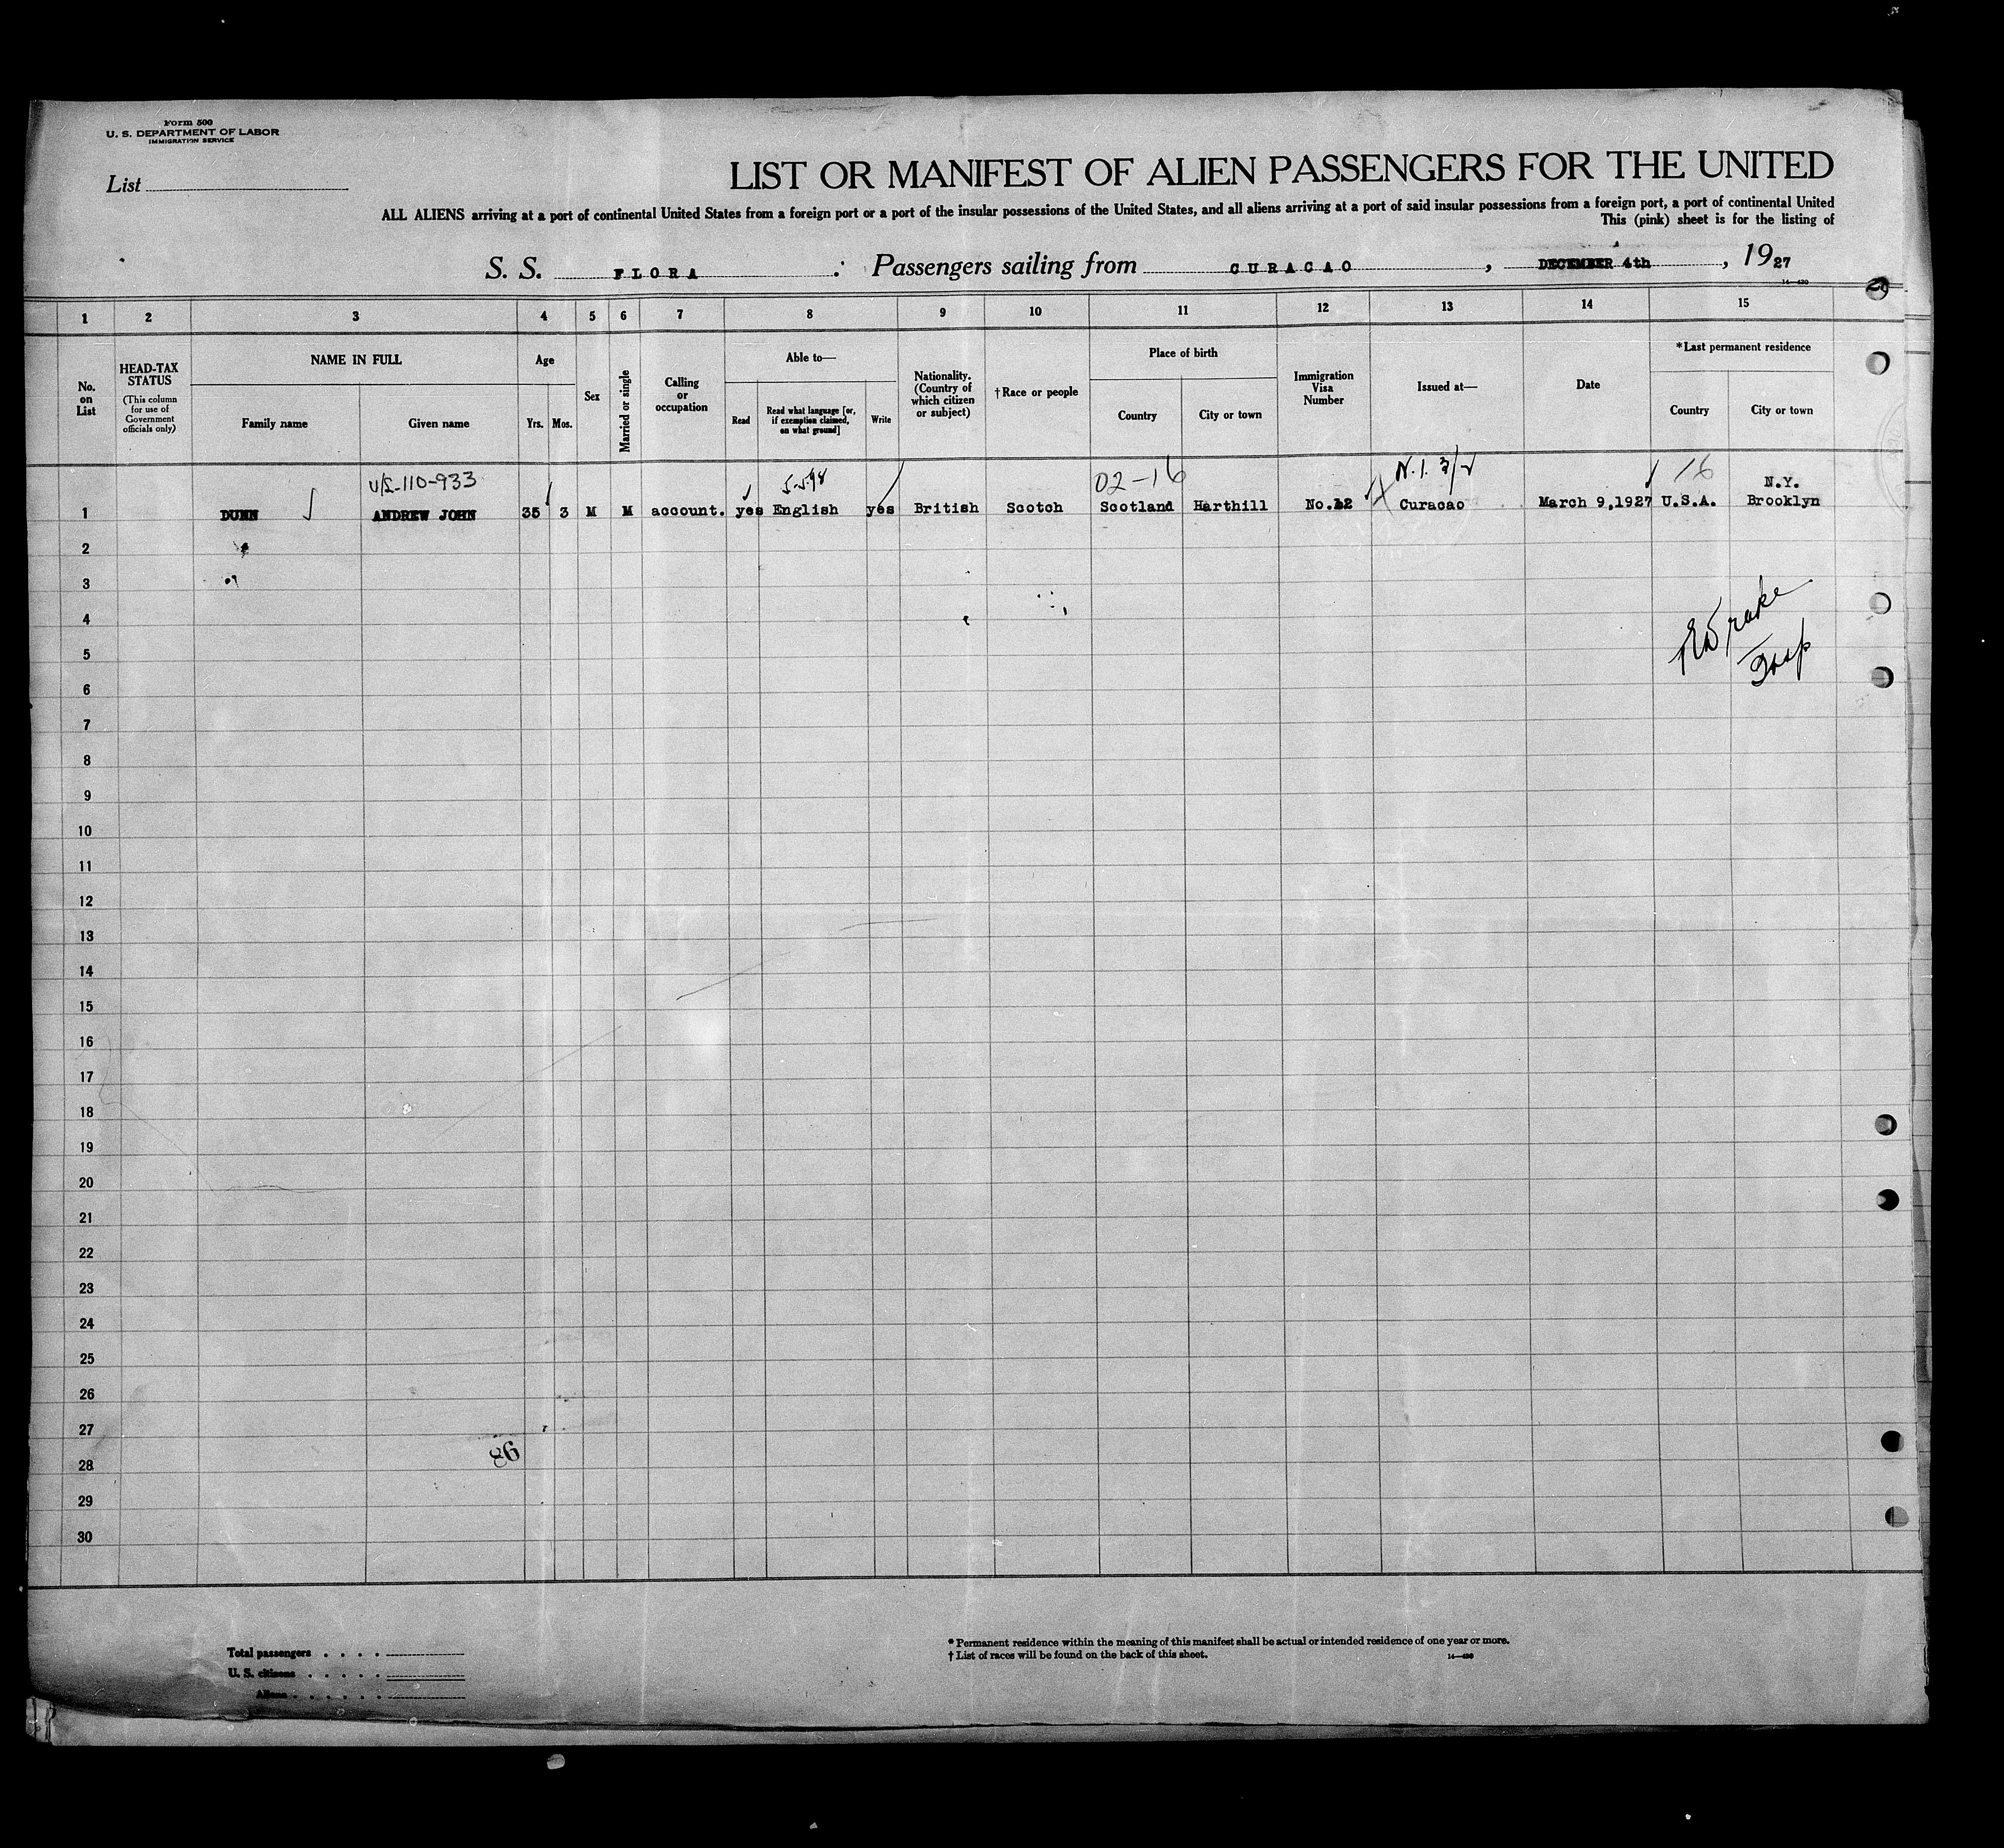 Form 500
U. S. DEPARTMENT OF LABOR
IMMIGRATION SERVICE
List
LIST OR MANIFEST OF ALIEN PASSENGERS FOR THE UNITED
ALL ALIENS arriving at a port of continental United States from a foreign port or a port of the insular possessions of the United States, and all aliens arriving at a port of said insular possessions from a foreign port, a port of continental United
This (pink) sheet is for the listing of
S. S. FLORA : Passengers sailing from CURACAO , DECEMBER 4th , 1927
14—430
1 2 3 4 5 6 7 8 9 10 11 12 13 14 15
No. on List
HEAD-TAX STATUS (This column for use of Government officials only)
NAME IN FULL
Family name Given name
Age
Yrs. Mos.
Sex
Married or single
Calling or occupation
Able to—
Read
Read what language [or, if exemption claimed, on what ground]
Write
Nationality. (Country of which citizen or subject)
†Race or people
Place of birth
Country City or town
Immigration Visa Number
Issued at—
Date
*Last permanent residence
Country City or town
V/S-110-933 02-16 N.I. 3/2 16 N.Y.
1 DUNN ANDREW JOHN 35 3 M M account. yes English yes British Scotch Scotland Harthill No.12 Curacao March 9,1927 U.S.A. Brooklyn
2
3
4
5
6
7
8
9
10
11
12
13
14
15
16
17
18
19
20
21
22
23
24
25
26
27
28
29
30
Drake
Insp
86
Total passengers
U. S. citizens
Aliens
* Permanent residence within the meaning of this manifest shall be actual or intended residence of one year or more.
† List of races will be found on the back of this sheet.
14—430